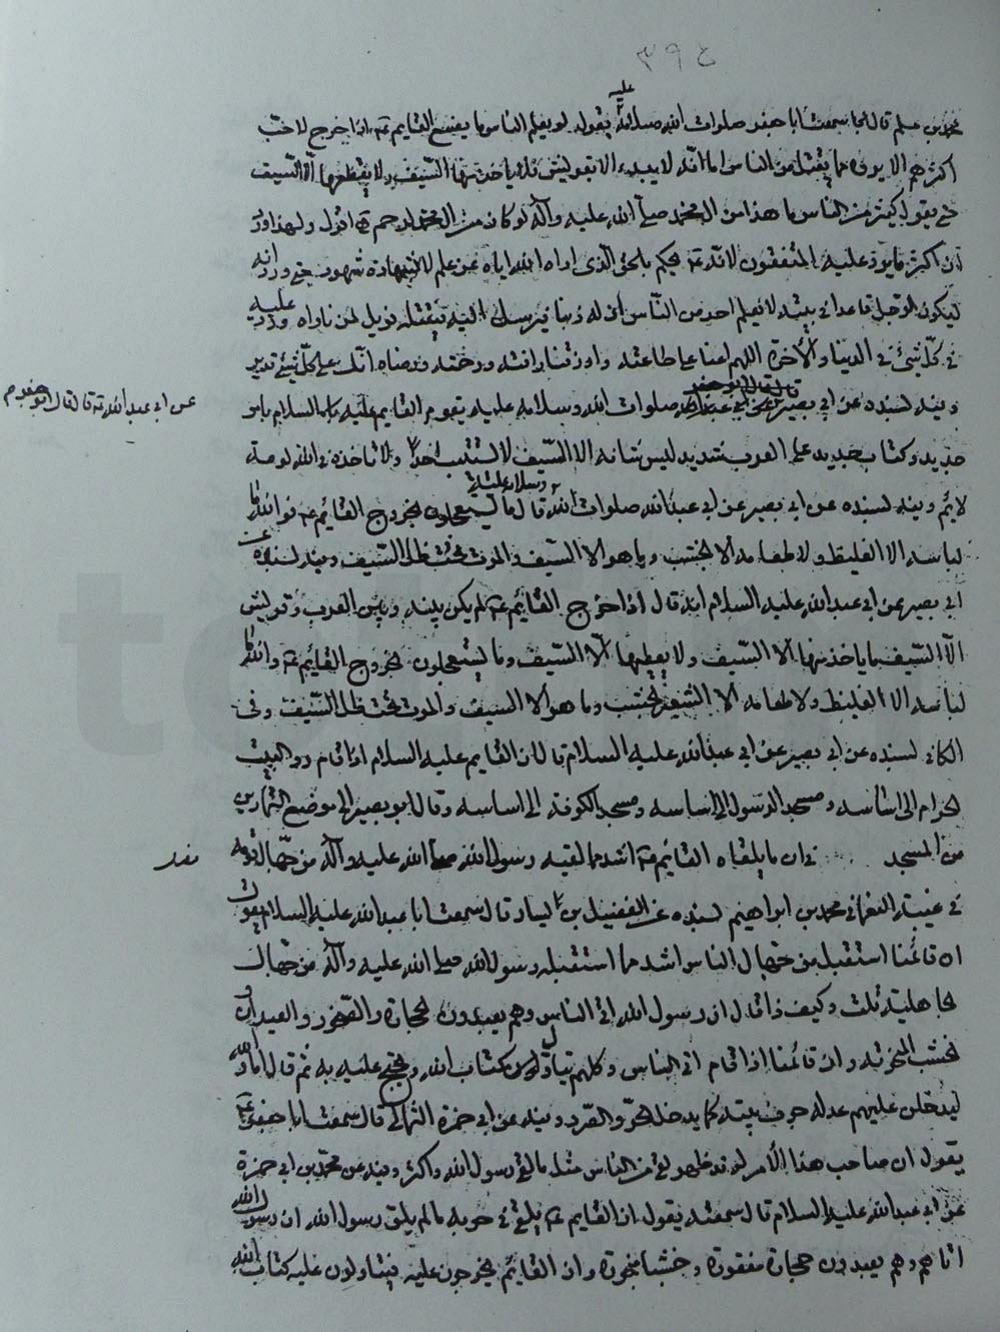 ٣٩٤
محمد بن مسلم قال سمعت ابا جعفر صلوات الله وسلامه عليه يقول لو يعلم الناس ما يصنع القايم عه اذا خرج لاحب
اكثرهم الا يروه مما يقتل من الناس اما انه لا يبدء الا بقريش فلا ياخذ منها الا السيف ولا يعطيها الا السيف
حتى يقول كثير من الناس ما هذا من ال محمد صلى الله عليه وآله لو كان من ال محمد لرحم اقول ولهذا ورد
ان اكثر ما يرد عليه المتفقهون لانه عه يحكم بالحق الذى اراه الله اياه عن علم لا بشهادة شهود حتى ورد انه
ليكون الرجل قاعدا في بيته لا يعلم احد من الناس ان له ذنبا يرسل اليه فيقتله فويل لمن ناواه ورد عليه
في كل شئ في الدينا والآخرة اللهم اعنا على طاعته وارزقنا رافته ورحمته ورضاه انك على كل شئ قدير
وفيه بسنده عن ابي بصير قال قال ابو جعفر صلوات الله وسلامه عليه يقوم القايم عليه السلام بامر
عن ابي عبد الله عه قال قال ابو جعفر
جديد وكتاب جديد على العرب شديد ليس شانه الا السيف لا يستتيب احدا ولا تاخذه في الله لومة
لائم وفيه بسنده عن ابي بصير عن ابي عبد الله صلوات الله وسلامه عليه قال ما يستعجلون بخروج القائم عه فوالله ما
لباسه الا الغليظ ولا طعامه الا الجشب وما هو الا السيف والموت تحت ظل السيف وفيه بسنده عن
ابي بصير عن ابي عبد الله عليه السلام انه قال اذا خرج القائم عه لم يكن بينه وبين العرب وقريش
الا السيف ما ياخذ منها الا السيف ولا يعطيها الا السيف وما يستعجلون بخروج القايم عه والله ما
لباسه الا الغليظ ولا طعامه الا الشعير الجشب وما هو الا السيف والموت تحت ظل السيف وفى
الكافي بسنده عن ابي بصير عن ابي عبد الله عليه السلام قال ان القايم عليه السلام اذا قام رد البيت
الحرام الى اساسه ومسجد الرسول الى اساسه ومسجد الكوفة الى اساسه وقال ابو بصير الى موضع التمارين
من المسجد في ان ما يلقاه القائم عه اشد مما لقيه رسول الله صلى الله عليه وآله من جهال قومه
في غيبة النعماني محمد بن ابراهيم بسنده عن الفضيل بن يسار قال سمعت ابا عبد الله عليه السلام يقول
ان قائمنا استقبل من جهال الناس اشد مما استقبله رسول الله صلى الله عليه وآله من جهال
الجاهلية قلت وكيف ذا قال ان رسول الله اتى الناس وهم يعبدون الحجارة والصخور والعيدان و
الخشب المنحوتة وان قائمنا اذا قام اتى الناس وكلهم يتاول كتاب الله ويحتج عليه به ثم قال اما والله
ليدخلن عليهم عدله جوف بيته كما يدخل الحر والقر وفيه عن ابي حمزة الثمالى قال سمعت ابا جعفر عه
يقول ان صاحب هذا الأمر لو قد ظهر لقى من الناس مثل ما لقى رسول الله واكثر وفيه عن محمد بن ابي حمزة
عن ابي عبد الله عليه السلام قال سمعته يقول ان القايم عه يلقى في حربه ما لم يلق رسول الله ان رسول الله
اتاهم وهم يعبدون حجارة منقورة وخشبا منحوتة وان القائم يخرجون عليه فيتاولون عليه كتاب الله